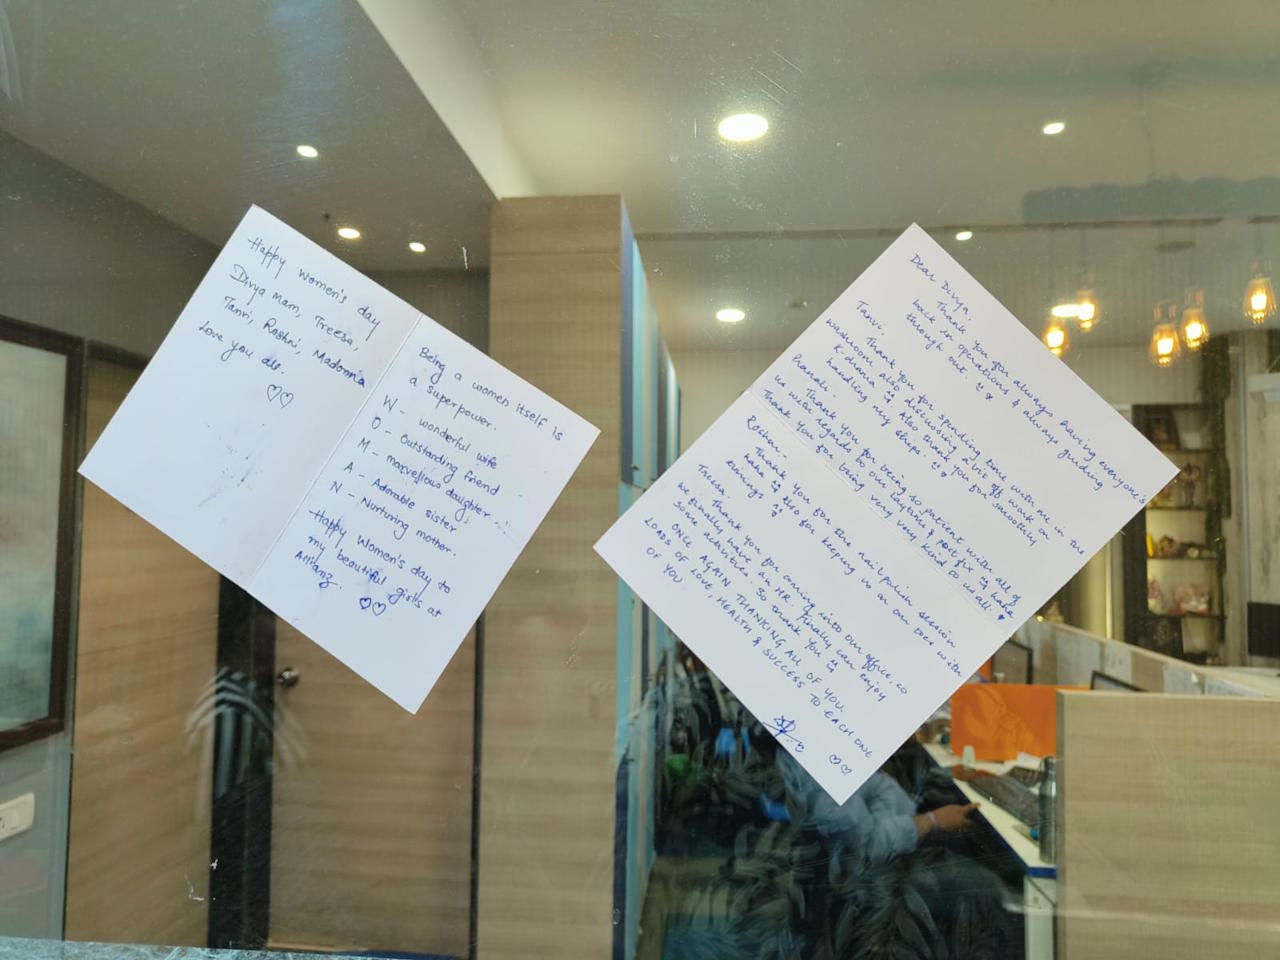 Happy Women's day
Divya Mam, Treesa,
Tanvi, Roshni, Madonna
Love you all.
Being a women itself is
a superpower.
W - wonderful wife
O - Outstanding friend
M - marvellous daughter
A - Adorable sister
N - Nurturing mother.
Happy Women's day to
my beautiful girls at
Allianz.
Dear Divya,
Thank you for always having everyone's
back in operations & always guiding
through out.
Tanvi. Thank you for spending time with me in the
washroom also discussing a bit off work in
K-drama Also thank you for smoothly
handling my ships.
Thank you for being so patient with all of
us with regards to our laytime & port fix haha
Thank you for being very very kind to us all.
Roshni - Thank you for the nail polish session
haha Also for keeping us an on over with
earnings
Treesa. Thank you for coming into our office, so
we finally have an HR. Finally can enjoy
some activities. So thank you
ONCE AGAIN THANKING ALL OF YOU
LOADS OF LOVE, HEALTH & SUCCESS TO EACH ONE
OF YOU